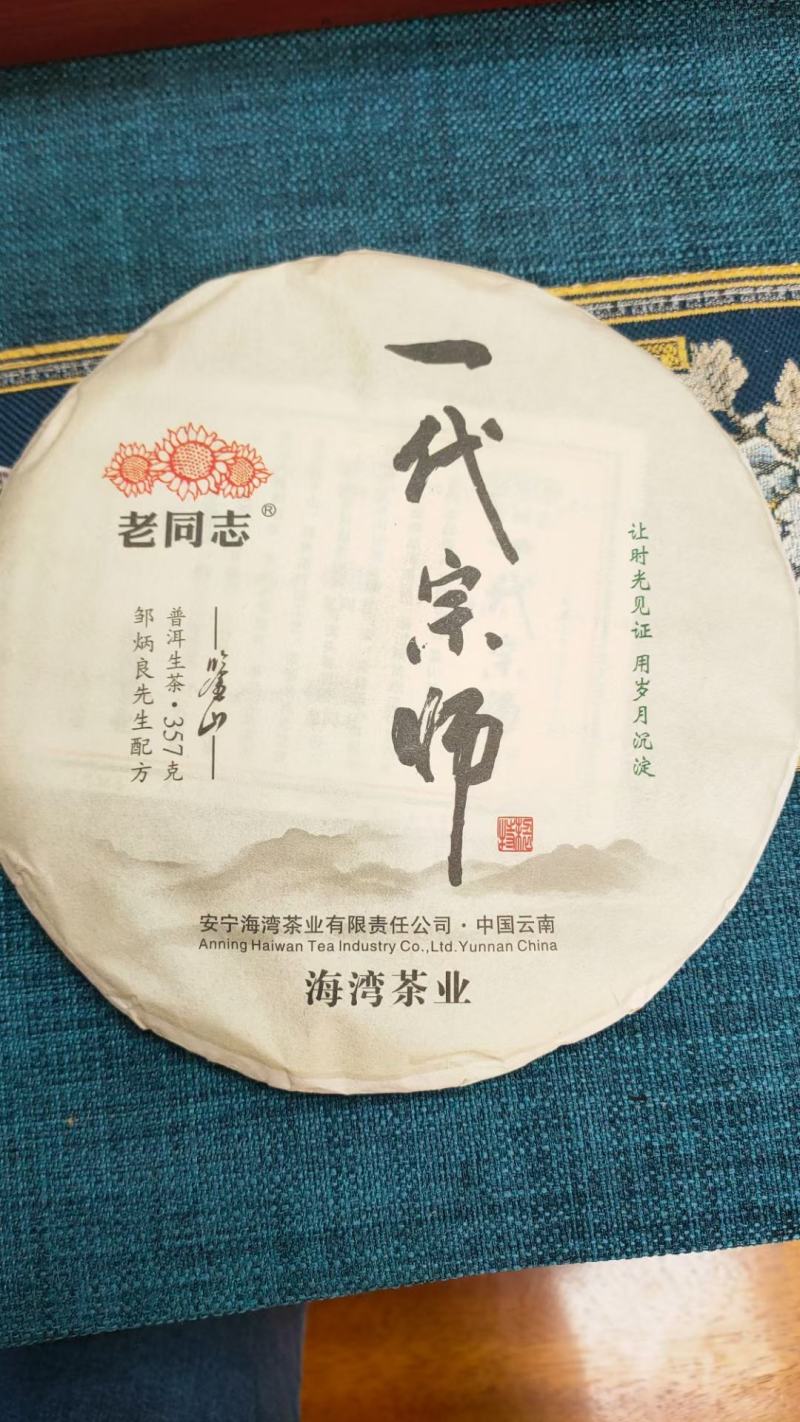 一代宗师
老同志®
让时光见证 用岁月沉淀
普洱生茶·357克
邹炳良先生配方
安宁海湾茶业有限责任公司·中国云南
Anning Haiwan Tea Industry Co.,Ltd.Yunnan China
海湾茶业